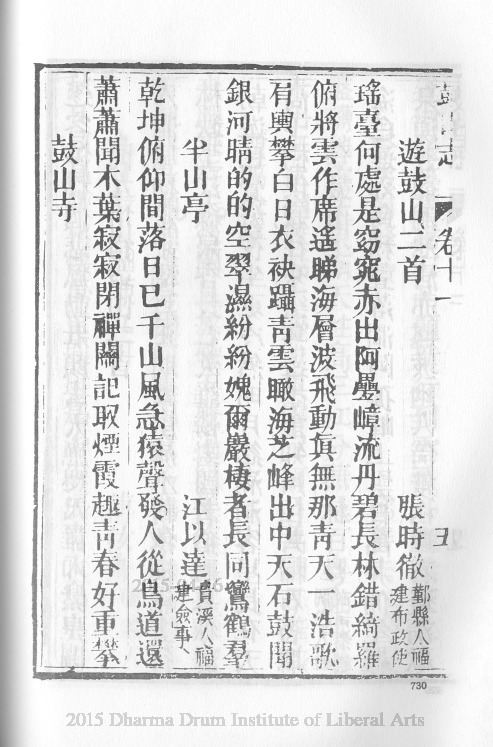 鼓山志 卷十一 五
遊鼓山二首 張時徹 鄞縣人福建布政使
瑤臺何處是窈窕赤出阿疊嶂流丹碧長林錯綺羅
俯將雲作席遙睇海層波飛動真無那青天一浩歌
有輿攀白日衣袂躡青雲瞰海芝峰出中天石鼓聞
銀河晴的的空翠濕紛紛媿爾巖棲者長同鸞鶴羣
半山亭 江以達 貴溪人福建僉事
乾坤俯仰間落日已千山風急猿聲發人從鳥道還
蕭蕭聞木葉寂寂閉禪關記取煙霞趣青春好重攀
鼓山寺
730
2015 Dharma Drum Institute of Liberal Arts